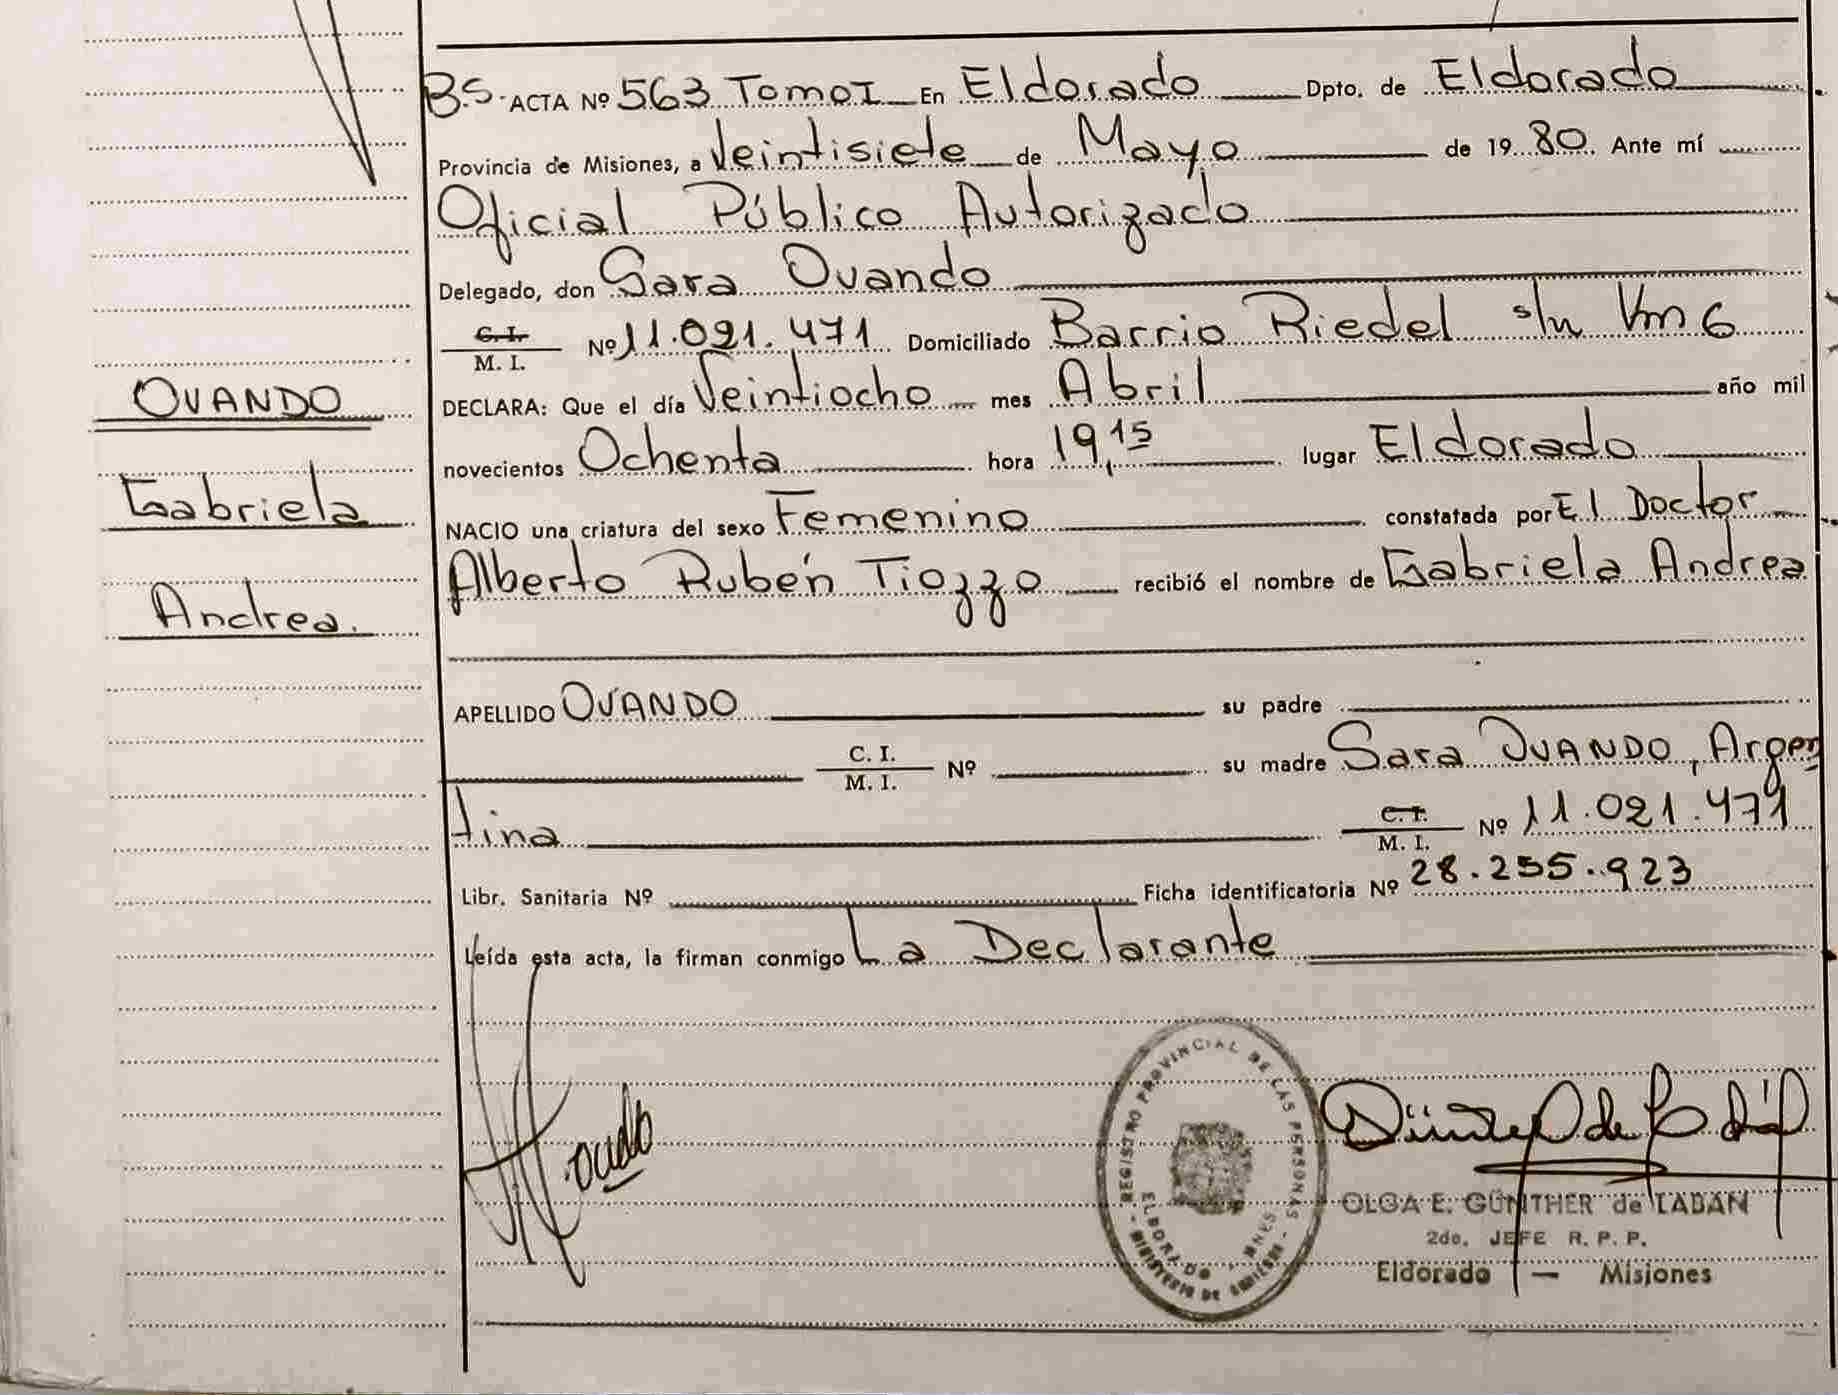 B.S. ACTA Nº 563 Tomo I En Eldorado Dpto. de Eldorado
Provincia de Misiones, a Veintisiete de Mayo de 19 80 Ante mí
Oficial Público Autorizado
Delegado, don Sara Ovando
C.I. M.I. Nº 11.021.471 Domiciliado Barrio Riedel s/n Km 6
DECLARA: Que el día Veintiocho mes Abril año mil
novecientos Ochenta hora 19,15 lugar Eldorado
NACIO una criatura del sexo Femenino constatada por El Doctor
Alberto Rubén Tiozzo recibió el nombre de Gabriela Andrea
APELLIDO OVANDO su padre
C. I. M. I. Nº su madre Sara OVANDO, Argen
tina C. I. M. I. Nº 11.021.471
Libr. Sanitaria Nº Ficha identificatoria Nº 28.255.923
Leída esta acta, la firman conmigo La Declarante
OVANDO
Gabriela
Andrea.
REGISTRO PROVINCIAL DE LAS PERSONAS
ELDORADO
MINISTERIO DE GOBIERNO
OLGA E. GÜNTHER de LABAN
2do. JEFE R. P. P.
Eldorado — Misiones